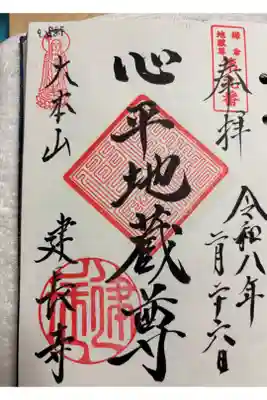 鎌倉
地蔵尊
奉拝
令和八年
月廿六日
心平地蔵尊
大本山
建長寺